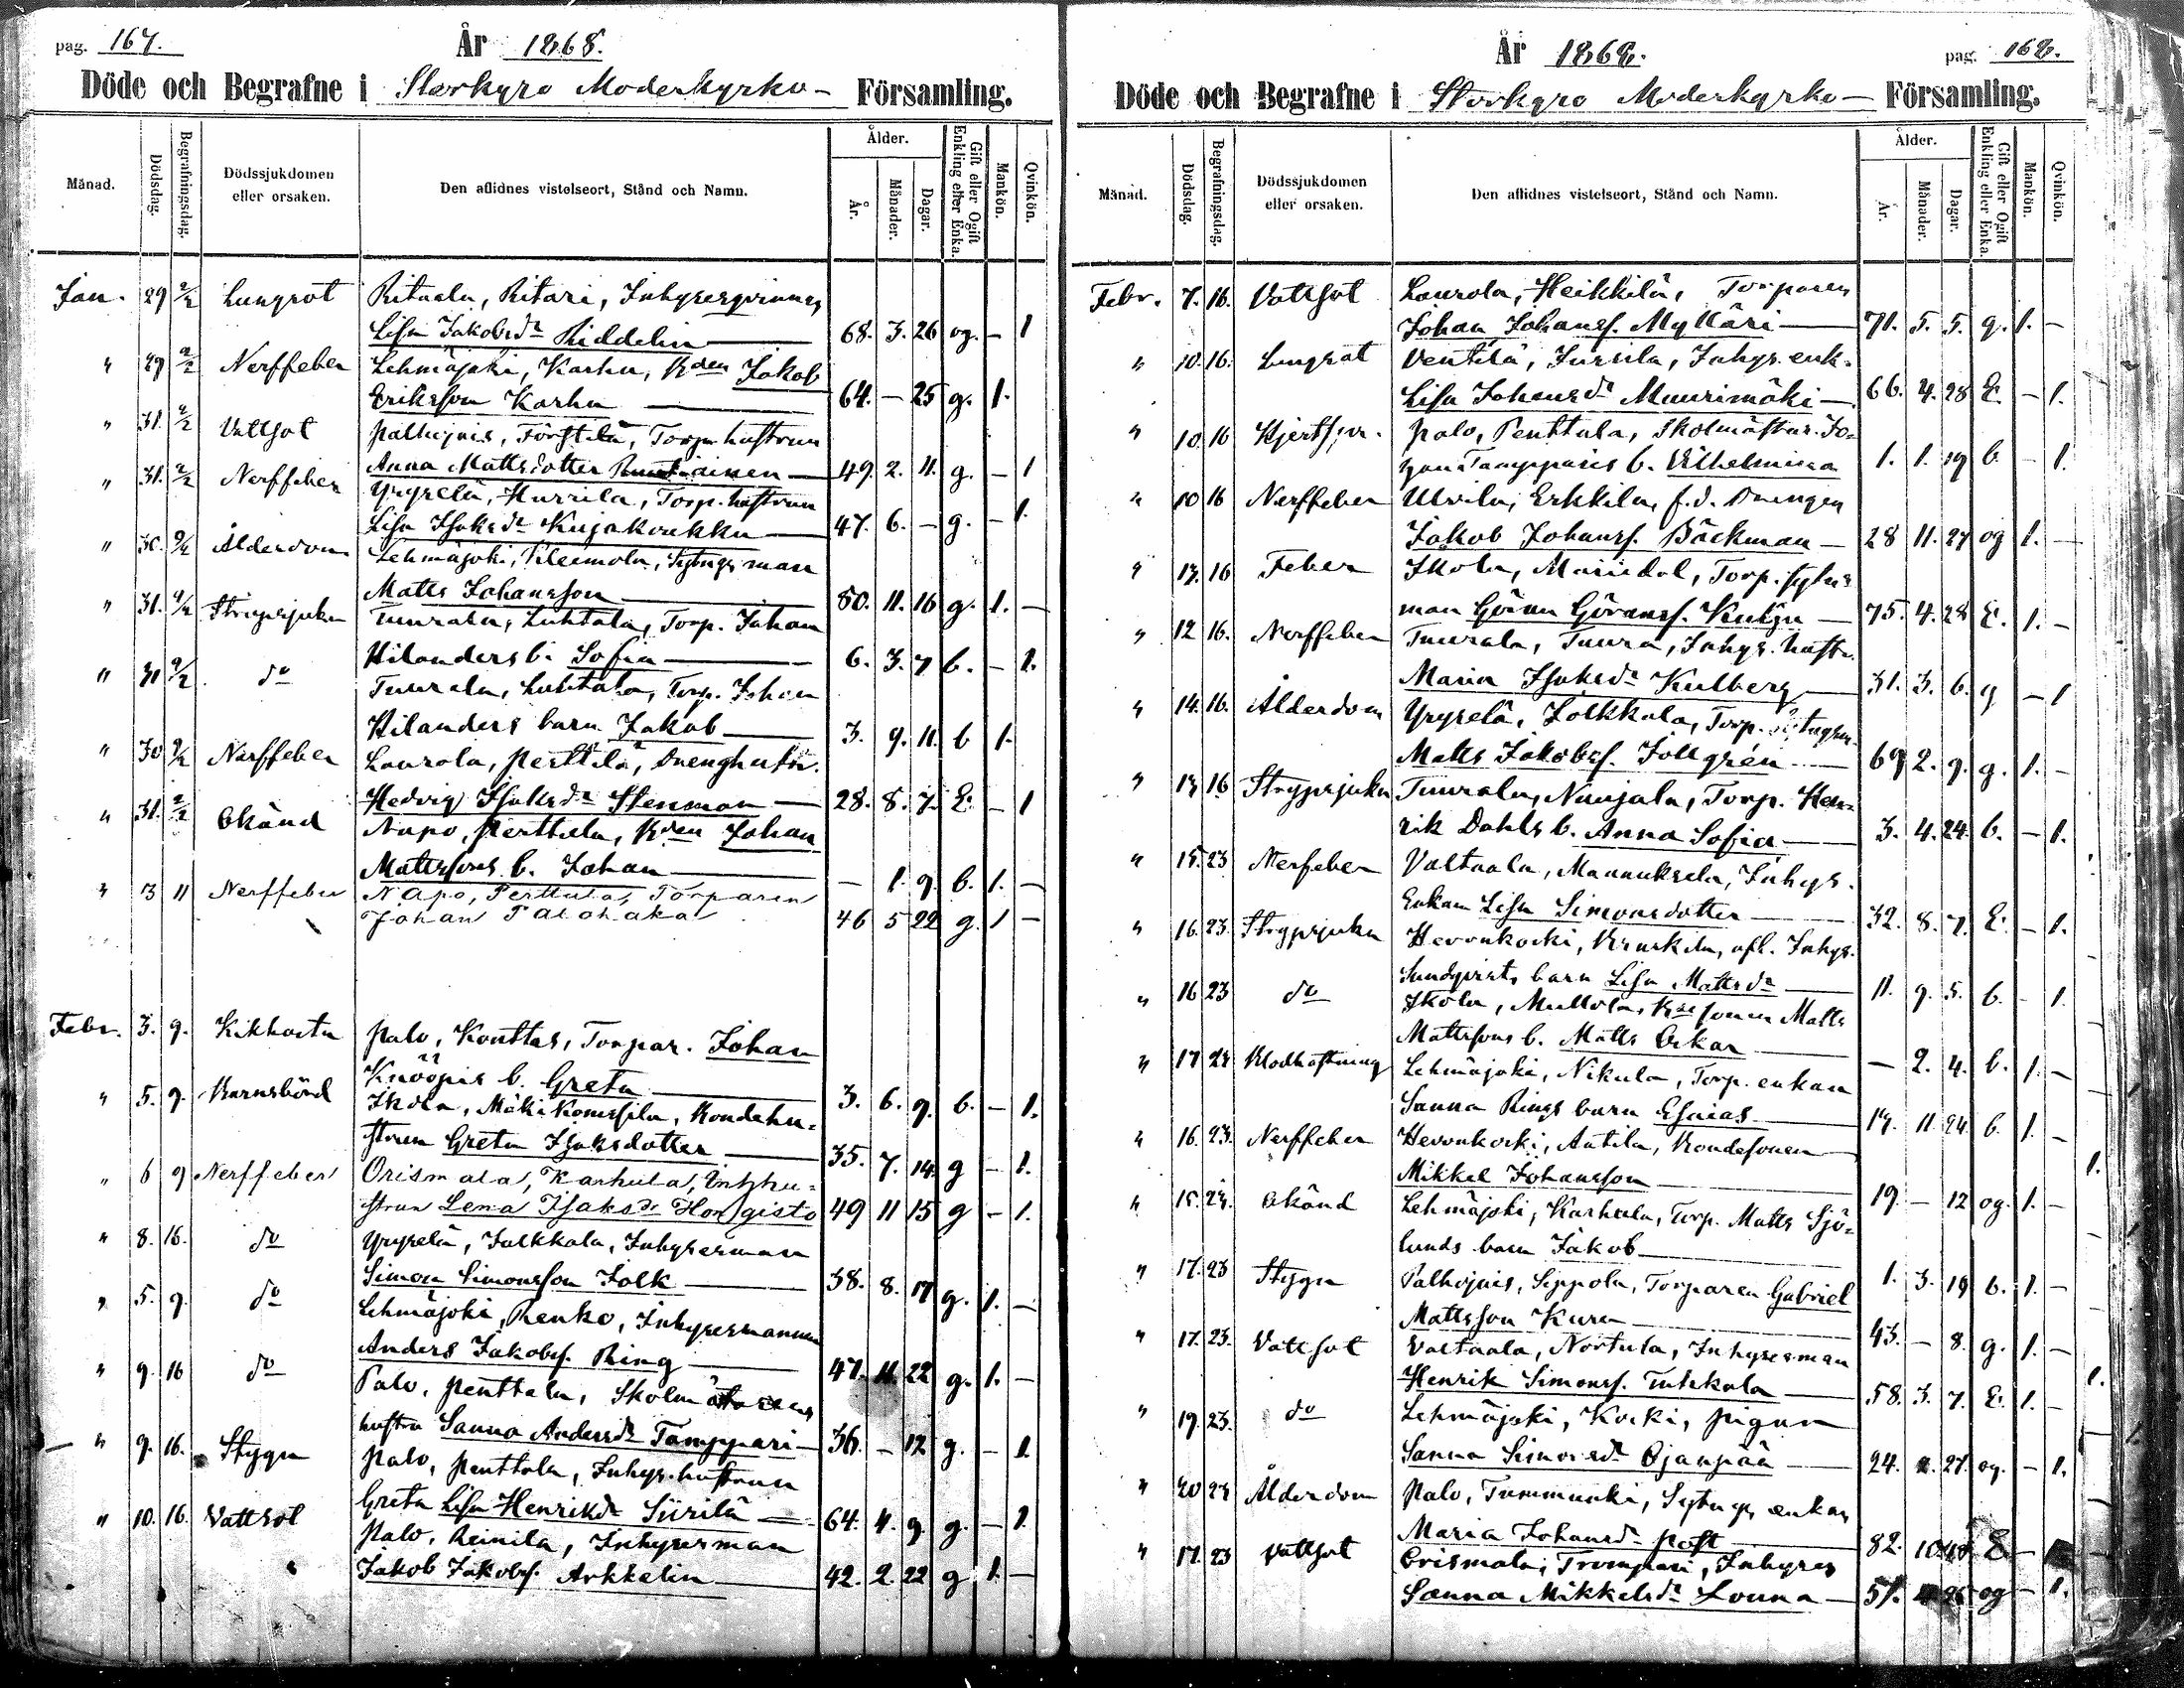 pag. 167.
År 1868.
Döde och Begrafne i Storkyro Moderkyrko- Församling.
Månad.
Dödsdag.
Begrafningsdag.
Dödssjukdomen eller orsaken.
Den aflidnes vistelseort, Stånd och Namn.
Ålder.
År.
Månader.
Dagar.
Gift eller Ogift Enkling eller Enka.
Mankön.
Qvinkön.
Jan. 29 9/2 Lungsot Ritaala, Ritari, Inhysesqvinnan
Lisa Jakobsdr Riddelin 68. 3. 26 og. - 1
" 29 9/2 Nerffeber Lehmäjoki, Karhu, Bden Jakob
Eriksson Karhu 64. - 25 g. 1.
" 31. 9/2 Vattsot Palhojais, Förstilä, Torp. hustrun
Anna Mattsdotter 49. 2. 11. g. - 1
" 31. 9/2 Nerffeber Yryselä, Hurrila, Torp. hustrun
Lisa Isaksdr Kujakoukku 47. 6. - g. - 1.
" 30. 9/2 Ålderdom Lehmäjoki, Kleemola, Sytngs man
Matts Johansson 80. 11. 16 g. 1. -
" 31. 9/2 Strypsjukan Tuurala, Luhtala, Torp. Johan
Hilanders b. Sofia 6. 3. 7 b. - 1.
" 31 9/2 do Tuurala, Luhtala, Torp. Johan
Hilanders barn Jakob 3. 9. 11. b 1.
" 30 9/2 Nerffeber Laurola, Perttilä, Drenghustr.
Hedvig Isaksdr Stenman 28. 8. 7. E. - 1
" 31. 9/2 Okänd Napo, Perttula, Bden Johan
Mattssons b. Johan - 1. 9. b. 1. -
" 13 11 Nerffeber Napo, Perttula, Torparen
Johan Palohaka 46 5 22 g. 1 -
Febr. 3. 9. Kikhosta Palo, Konttas, Torpar. Johan
Knööpis b. Greta 3. 6. 9. b. - 1.
" 5. 9. Barnsbörd Ikola, Mäki Komsila, Bondehu-
strun Greta Isaksdotter 35. 7. 14. g - 1.
" 6 9 Nerffeber Orismala, Karhula, Enkhu-
strun Lena Isaksdr Honqisto 49 11 15 g - 1.
" 8. 16. do Yryselä, Jolkkala, Inhysesman
Simon Simonsson Jolk 38. 8. 17 g. 1. -
" 5. 9. do Lehmäjoki, Renko, Inhysesmannen
Anders Jakobs. Ring 47. 11. 22 g. 1. -
" 9. 16 do Palo, Penttala, Skolmästarens
hustru Sanna Andersdr Tamppari 36. - 12 g. - 1.
" 9. 16. Stygn Palo, Penttala, Inhys. hustrun
Greta Lisa Henriksdr Siirilä 64. 4. 9. g. - 1.
" 10. 16. Vattsot Palo, Reinila, Inhysesman
Jakob Jakobs. Arkkelin 42. 2. 22 g 1. -
År 1868.
pag. 168.
Döde och Begrafne i Storkyro Moderkyrko- Församling.
Månad.
Dödsdag.
Begrafningsdag.
Dödssjukdomen eller orsaken.
Den aflidnes vistelseort, Stånd och Namn.
Ålder.
År.
Månader.
Dagar.
Gift eller Ogift Enkling eller Enka.
Mankön.
Qvinkön.
Febr. 7. 16. Vattsot Laurola, Heikkilä, Torparen
Johan Johanss. Mylläri 71. 5. 5. g. 1. -
" 10. 16. Lungsot Ventilä, Jussila, Inhys. enk.
Lisa Johansdr Muurimäki 66. 4. 28 E. - 1.
" 10 16 Palo, Penttala, Skolmästar. Jo-
Tampparis b. Vilhelmina 1. 1. 19 b. - 1.
" 10 16 Nerffeber Ulvila, Erkkila, f.d. Drengen
Jakob Johanss. Bäckman 28 11. 27 og 1. -
" 13. 16 Feber Ikola, Mariedal, Torp. sytns
man Göran Göranss. Kukju 75. 4. 28 E. 1. -
" 12 16. Nerffeber Tuurala, Tuura, Inhys. hustr.
Maria Isaksdr Kulberg 31. 3. 6. g - 1
" 14. 16. Ålderdom Yryselä, Jolkkala, Torp.
Matts Jakobss. Jollgrén 69 2. 9. g. 1. -
" 13 16 Strypsjukan Tuurala, Nuujala, Torp. Hen-
rik Dahls b. Anna Sofia 3. 4. 24. b. - 1.
" 15. 23 Nerfeber Valtaala, Mannuksela, Inhys.
Enkan Lisa Simonsdotter 32. 8. 7. E. - 1.
" 16. 23. Strypsjukan Hevonkoski, afl. Inhys.
Sundqvists barn Lisa Mattsdr 11. 9. 5. b. - 1.
" 16 23 do Ikola, Mullola, Bdesonen Matts
Mattssons b. Matts Oskar - 2. 4. b. 1. -
" 17 23 Blodhostning Lehmäjoki, Nikula, Torp. enkan
Sanna Rings barn Esaias 14. 11 24. b. 1. -
" 16. 23. Nerffeber Hevonkoski, Antila, Bondesonen
Mikkel Johansson 19. - 12 og. 1. -
" 15. 23. Okänd Lehmäjoki, Karhula, Torp. Matts Sjö-
lunds barn Jakob 1. 3. 19 b. 1. -
" 17. 23 Stygn Palhojais, Seppola, Torparen Gabriel
Mattsson Kura 43. - 8. g. 1. -
" 17. 23. Vattsot Valtaala, Nortula, Inhysesman
Henrik Simonss. Tutskala 58. 3. 7. E. 1. -
" 19. 23. do Lehmäjoki, Koski, Pigan
Sanna Simonsdr Ojanpää 24. 2. 27. og. - 1.
" 20 23 Ålderdom Palo, Tammunki, Sytngs enkan
Maria Johansdr Post 82. 10. E -
" 17. 23 Vattsot Orismala, Trompari, Inhyses
Sanna Mikkelsdr Louna 51. og - 1.